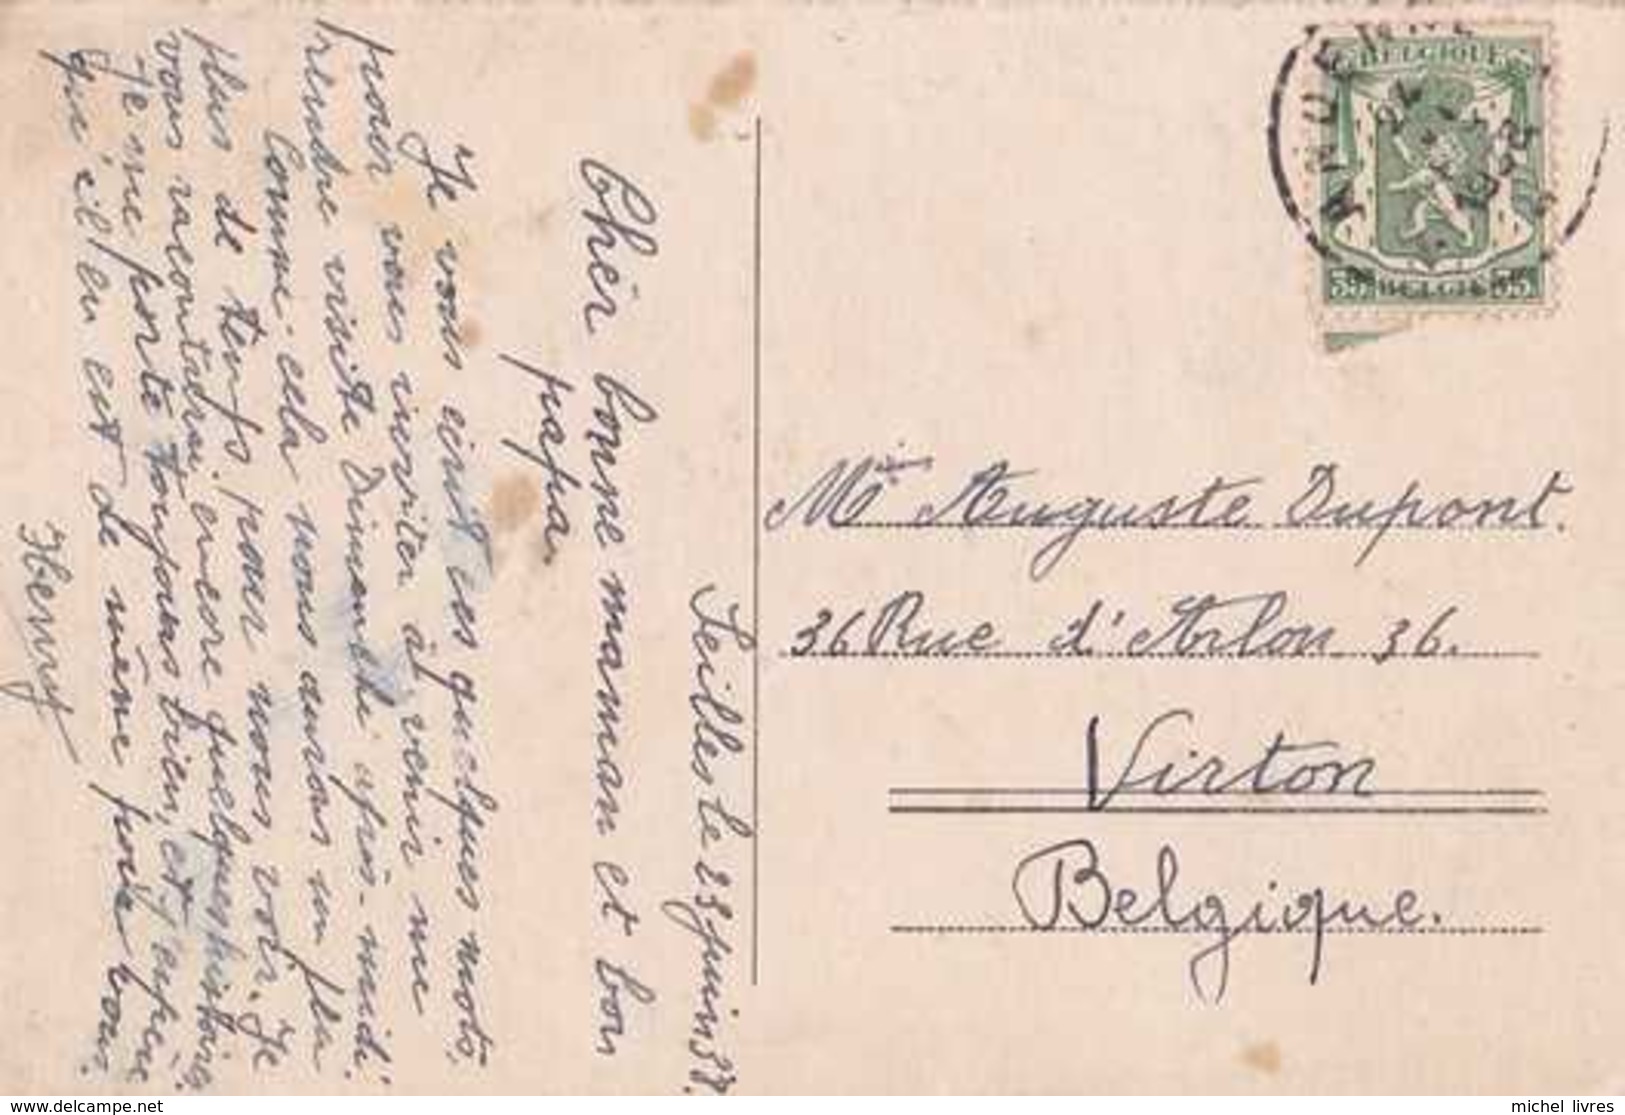 Seilles le 23 juin 38.
Cher bonne maman et bon
papa.
Je vous écrit ces quelques mots.
pour vous inviter à venir me
rendre visite Dimanche après-midi.
Comme cela nous aurions un
plus de temps pour nous voir. Je
vous raconterai encore quelques histoires
Je me porte toujours bien, et j'espère
que il en est de même pour vous.
Henry
BELGIQUE
35 BELGIE 35
Auguste Dupont.
36 Rue d'Arlon 36.
Virton
Belgique.
michel_livres
www.delcampe.net